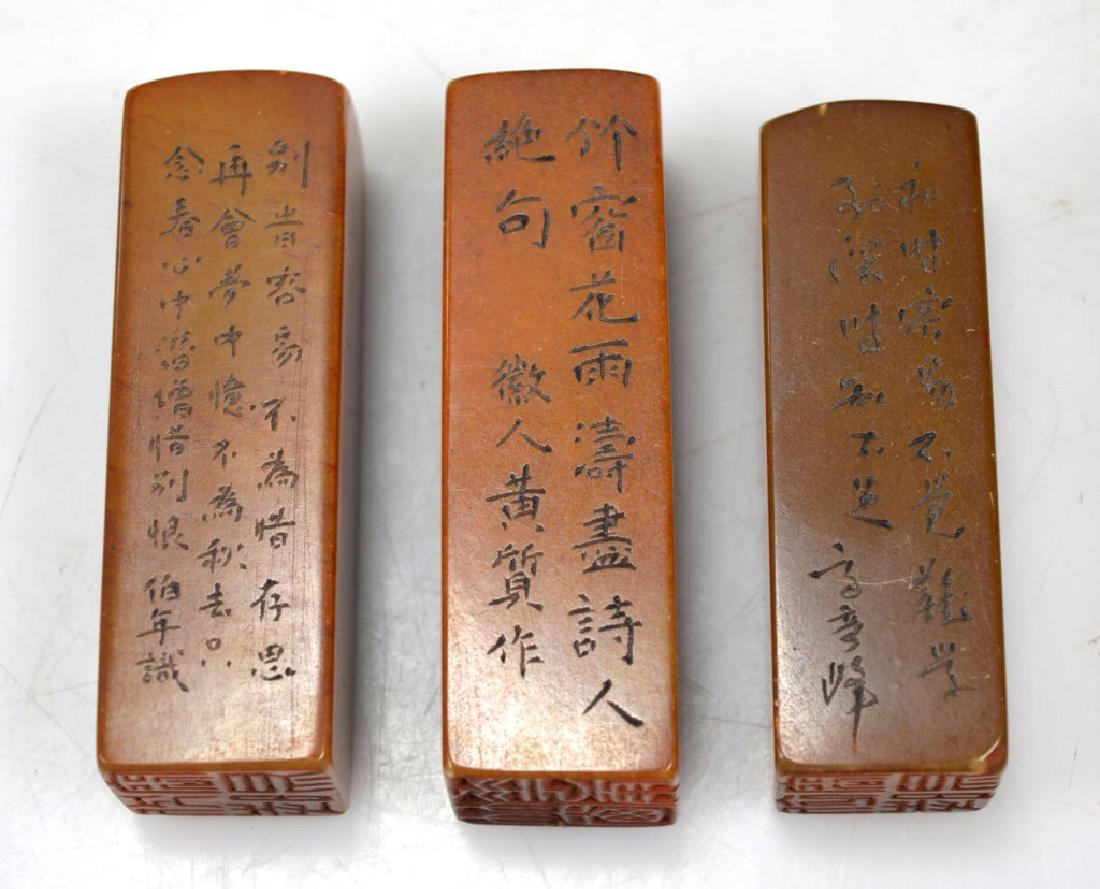 別旹容易不為惜存思
再會夢中憶不為秋去只
念春心中潛憎惜別恨 伯年識
竹窗花雨濤盡詩人
絶句 徽人黃質作
初时容易不覺難学
深时知不足 高奇峰